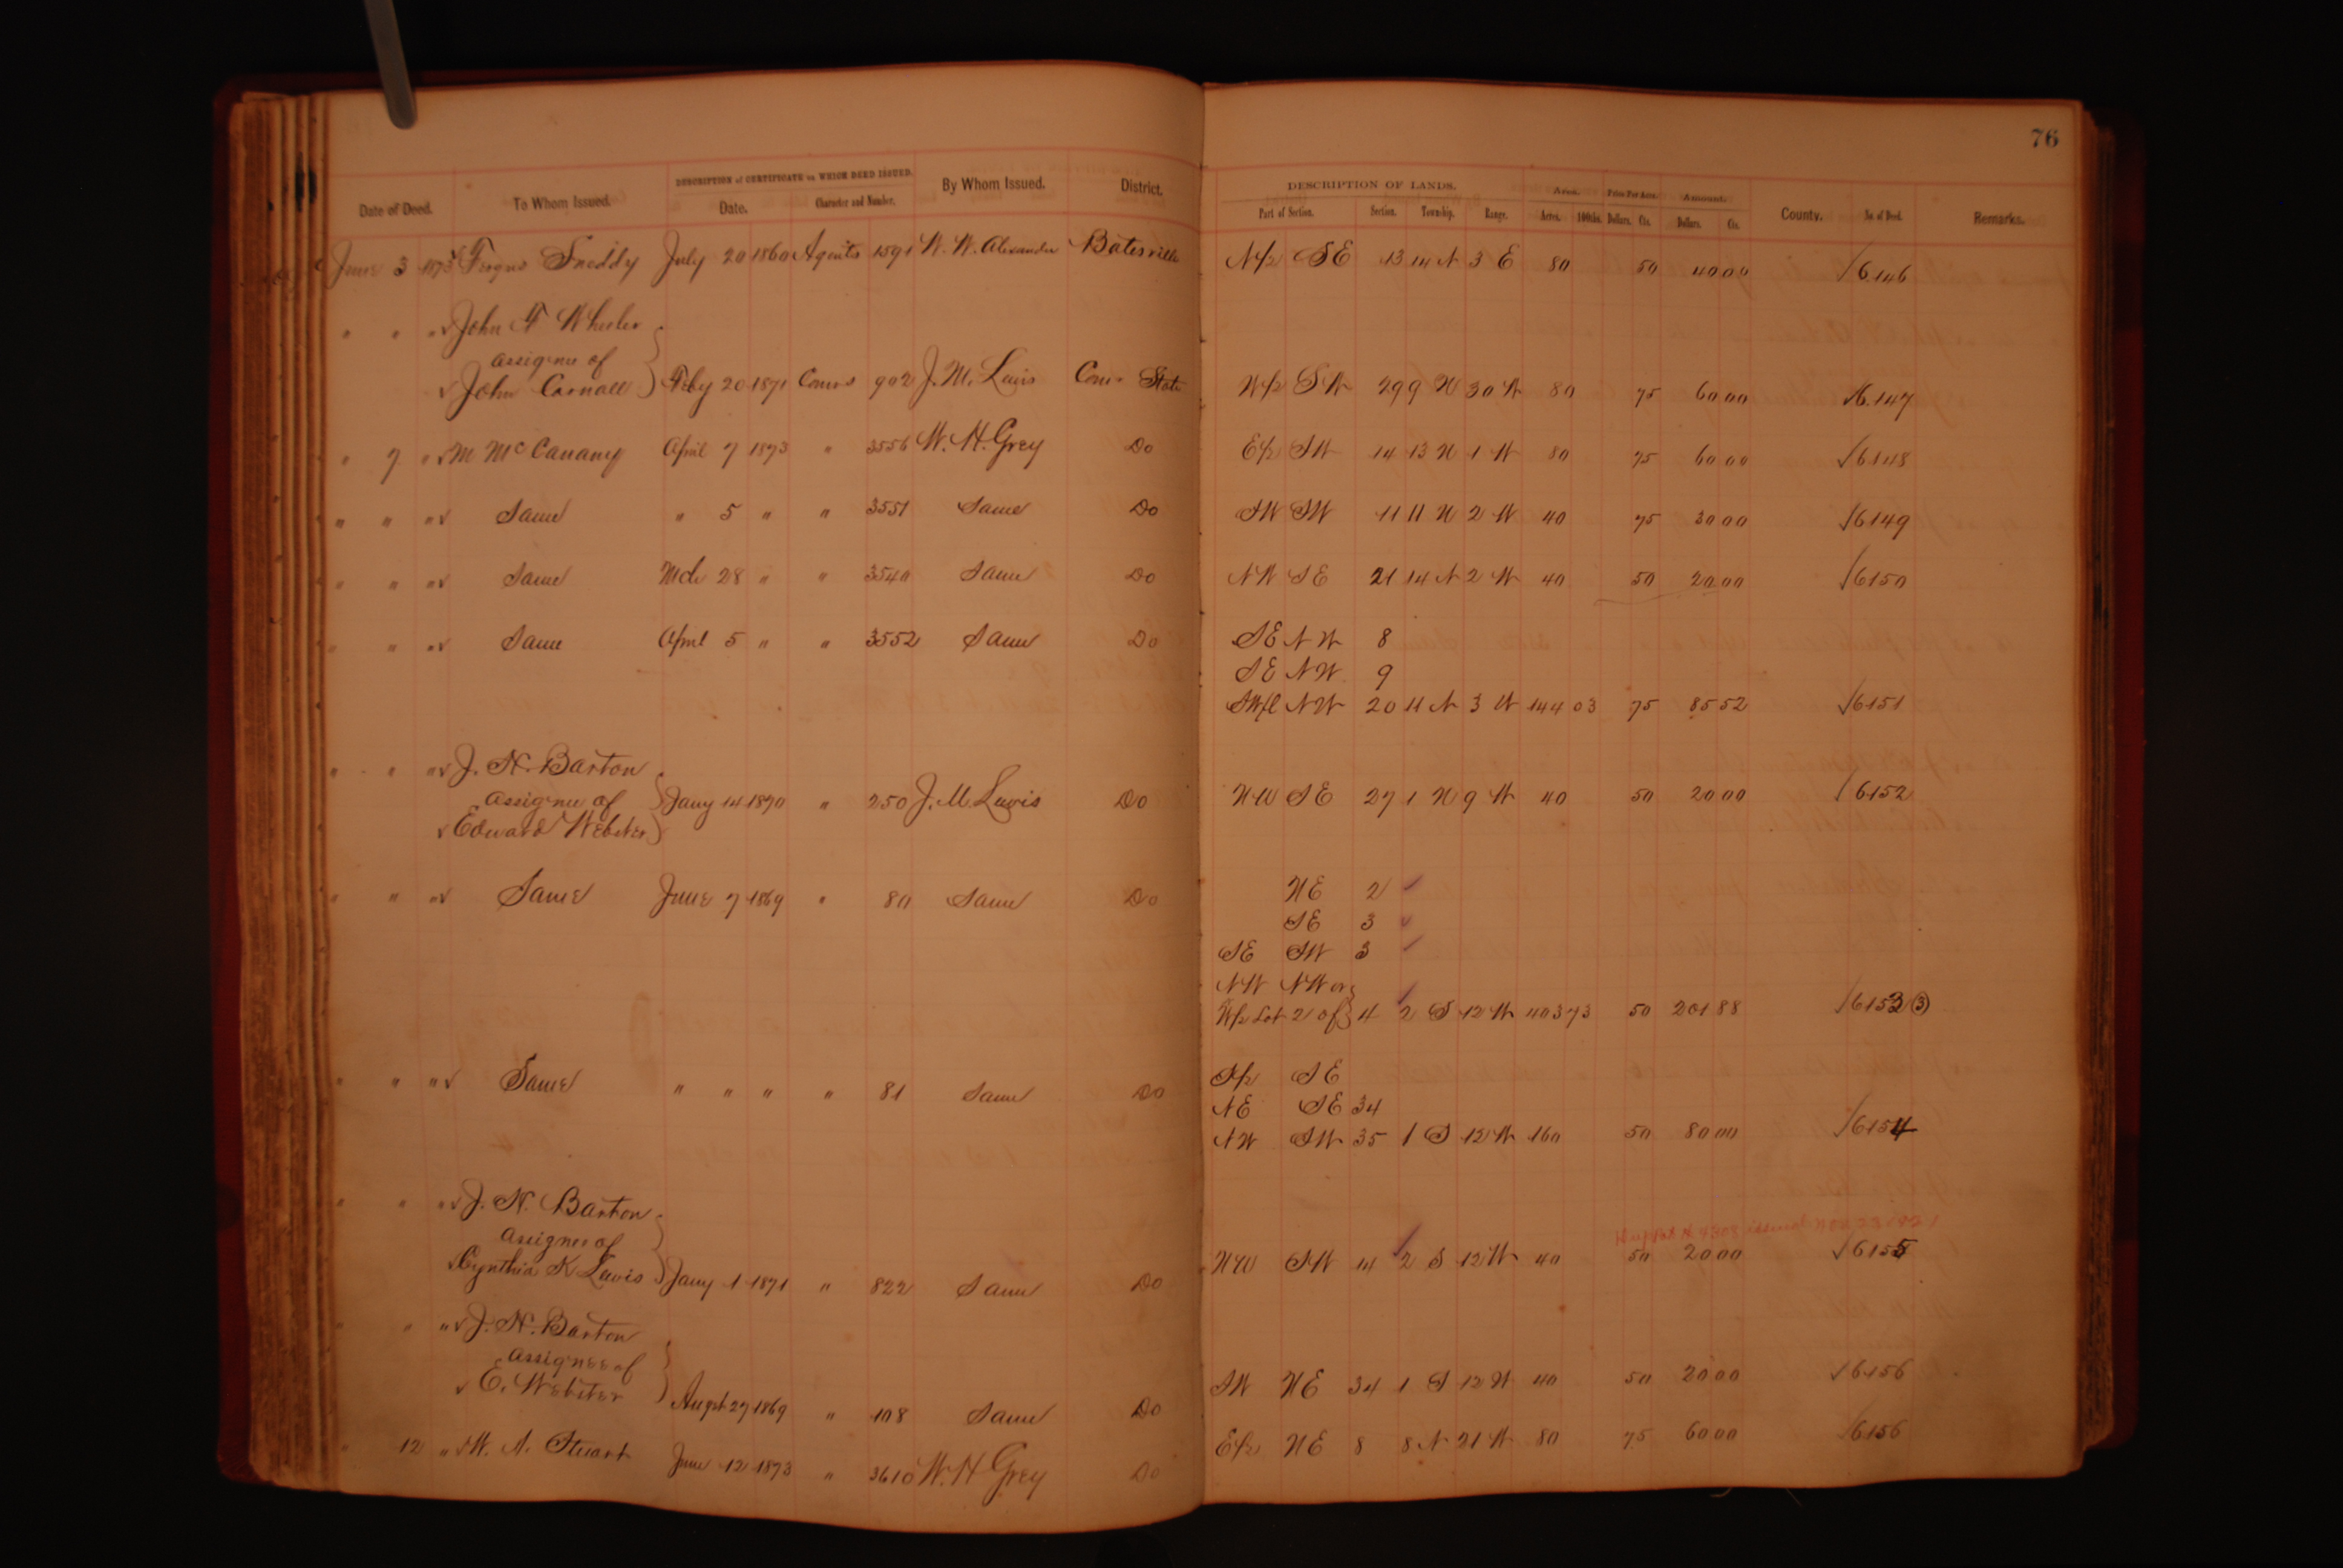 76
DESCRIPTION of CERTIFICATE on WHICH DEED ISSUED. DESCRIPTION OF LANDS. Area. Price Per Acre. Amount.
Date of Deed. To Whom Issued. Date. Character and Number. By Whom Issued. District. Part of Section. Section. Township. Range. Acres. 100ths. Dollars. Cts. Dollars. Cts. County. No. of Deed. Remarks.
June 3 1873 Fergus Sneddy July 20 1860 Agents 1591 W. W. Alexander Batesville N/2 SE 13 14 N 3 E 80 50 40 00 6146
" " " John F Wheeler
assignee of
John Carnall } Feby 20 1871 Comrs 902 J. M. Lewis Comr State W/2 SW 29 9 N 30 W 80 75 60 00 6147
" 7 " M McCanany April 7 1873 " 3556 W. H. Grey Do E/2 SW 14 13 N 1 W 80 75 60 00 6148
" " " Same " 5 " " 3551 Same Do SW SW 11 11 N 2 W 40 75 30 00 6149
" " " Same Mch 28 " " 3540 Same Do NW SE 21 14 N 2 W 40 50 20 00 6150
" " " Same April 5 " " 3552 Same Do SE NW 8
SE NW 9
SWfl NW 20 11 N 3 W 144 03 75 85 52 6151
" " " J. N. Barton
assignee of
Edward Webster } Jany 14 1870 " 250 J. M. Lewis Do NW SE 27 1 N 9 W 40 50 20 00 6152
" " " Same June 7 1869 " 80 Same Do NE 2
SE 3
SE SW 3
NW NW or
W/2 Lot 2 of } 4 2 S 12 W 403 73 50 201 88 6153 (3)
" " " Same " " " " 81 Same Do S/2 SE
NE SE 34
NW SW 35 1 S 12 W 160 50 80 00 6154
" " " J. N. Barton
assignee of
Cynthia K Lewis } Jany 1 1871 " 822 Same Do NW SW 14 2 S 12 W 40 50 20 00 6155
issued
" " " J. N. Barton
assignee of
E. Webster } Augst 27 1869 " 108 Same Do SW NE 34 1 S 12 W 40 50 20 00 6156
" 12 " W. A. Stuart June 12 1873 " 3610 W. H Grey Do E/2 NE 8 8 N 21 W 80 75 60 00 6156